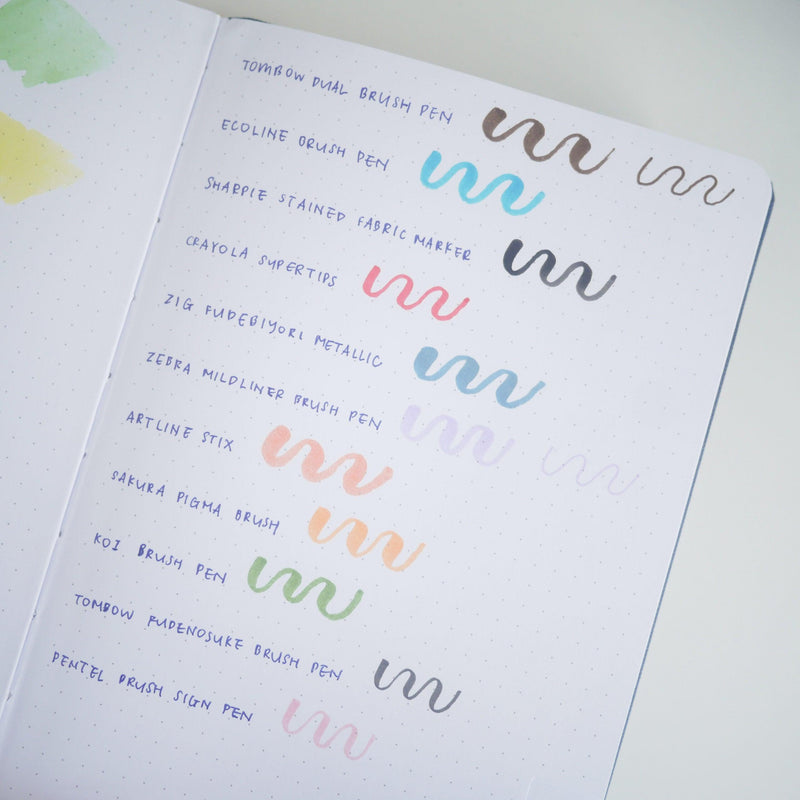 TOMBOW DUAL BRUSH PEN
ECOLINE BRUSH PEN
SHARPIE STAINED FABRIC MARKER
CRAYOLA SUPERTIPS
ZIG FUDEBIYORI METALLIC
ZEBRA MILDLINER BRUSH PEN
ARTLINE STIX
SAKURA PIGMA BRUSH
KOI BRUSH PEN
TOMBOW FUDENOSUKE BRUSH PEN
PENTEL BRUSH SIGN PEN